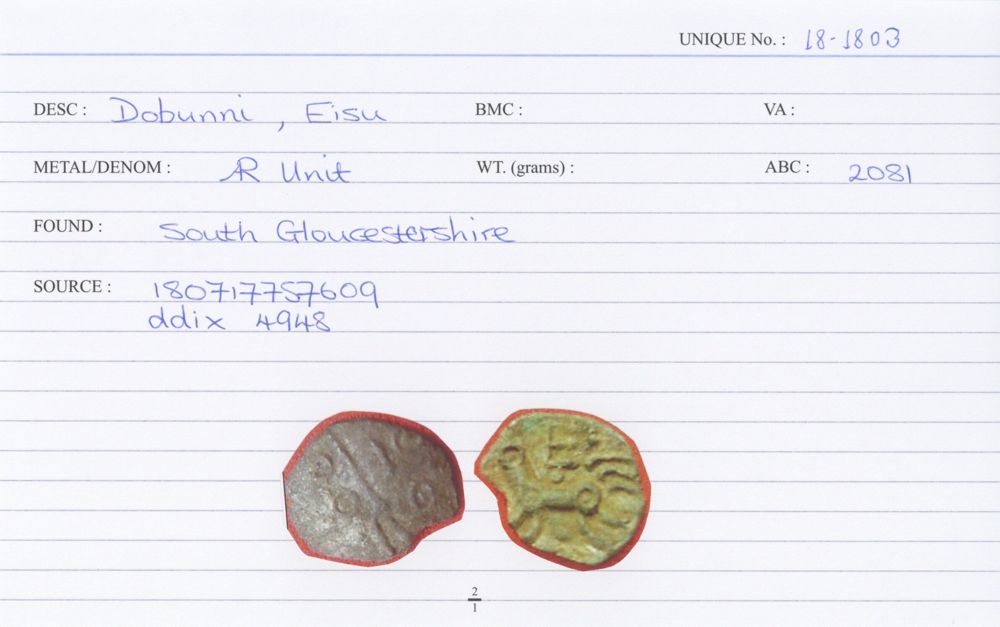 UNIQUE No. : 18-1803
DESC : Dobunni, Eisu BMC : VA :
METAL/DENOM : AR Unit WT. (grams) : ABC : 2081
FOUND : South Gloucestershire
SOURCE : 180717757609
ddix 4948
2
1